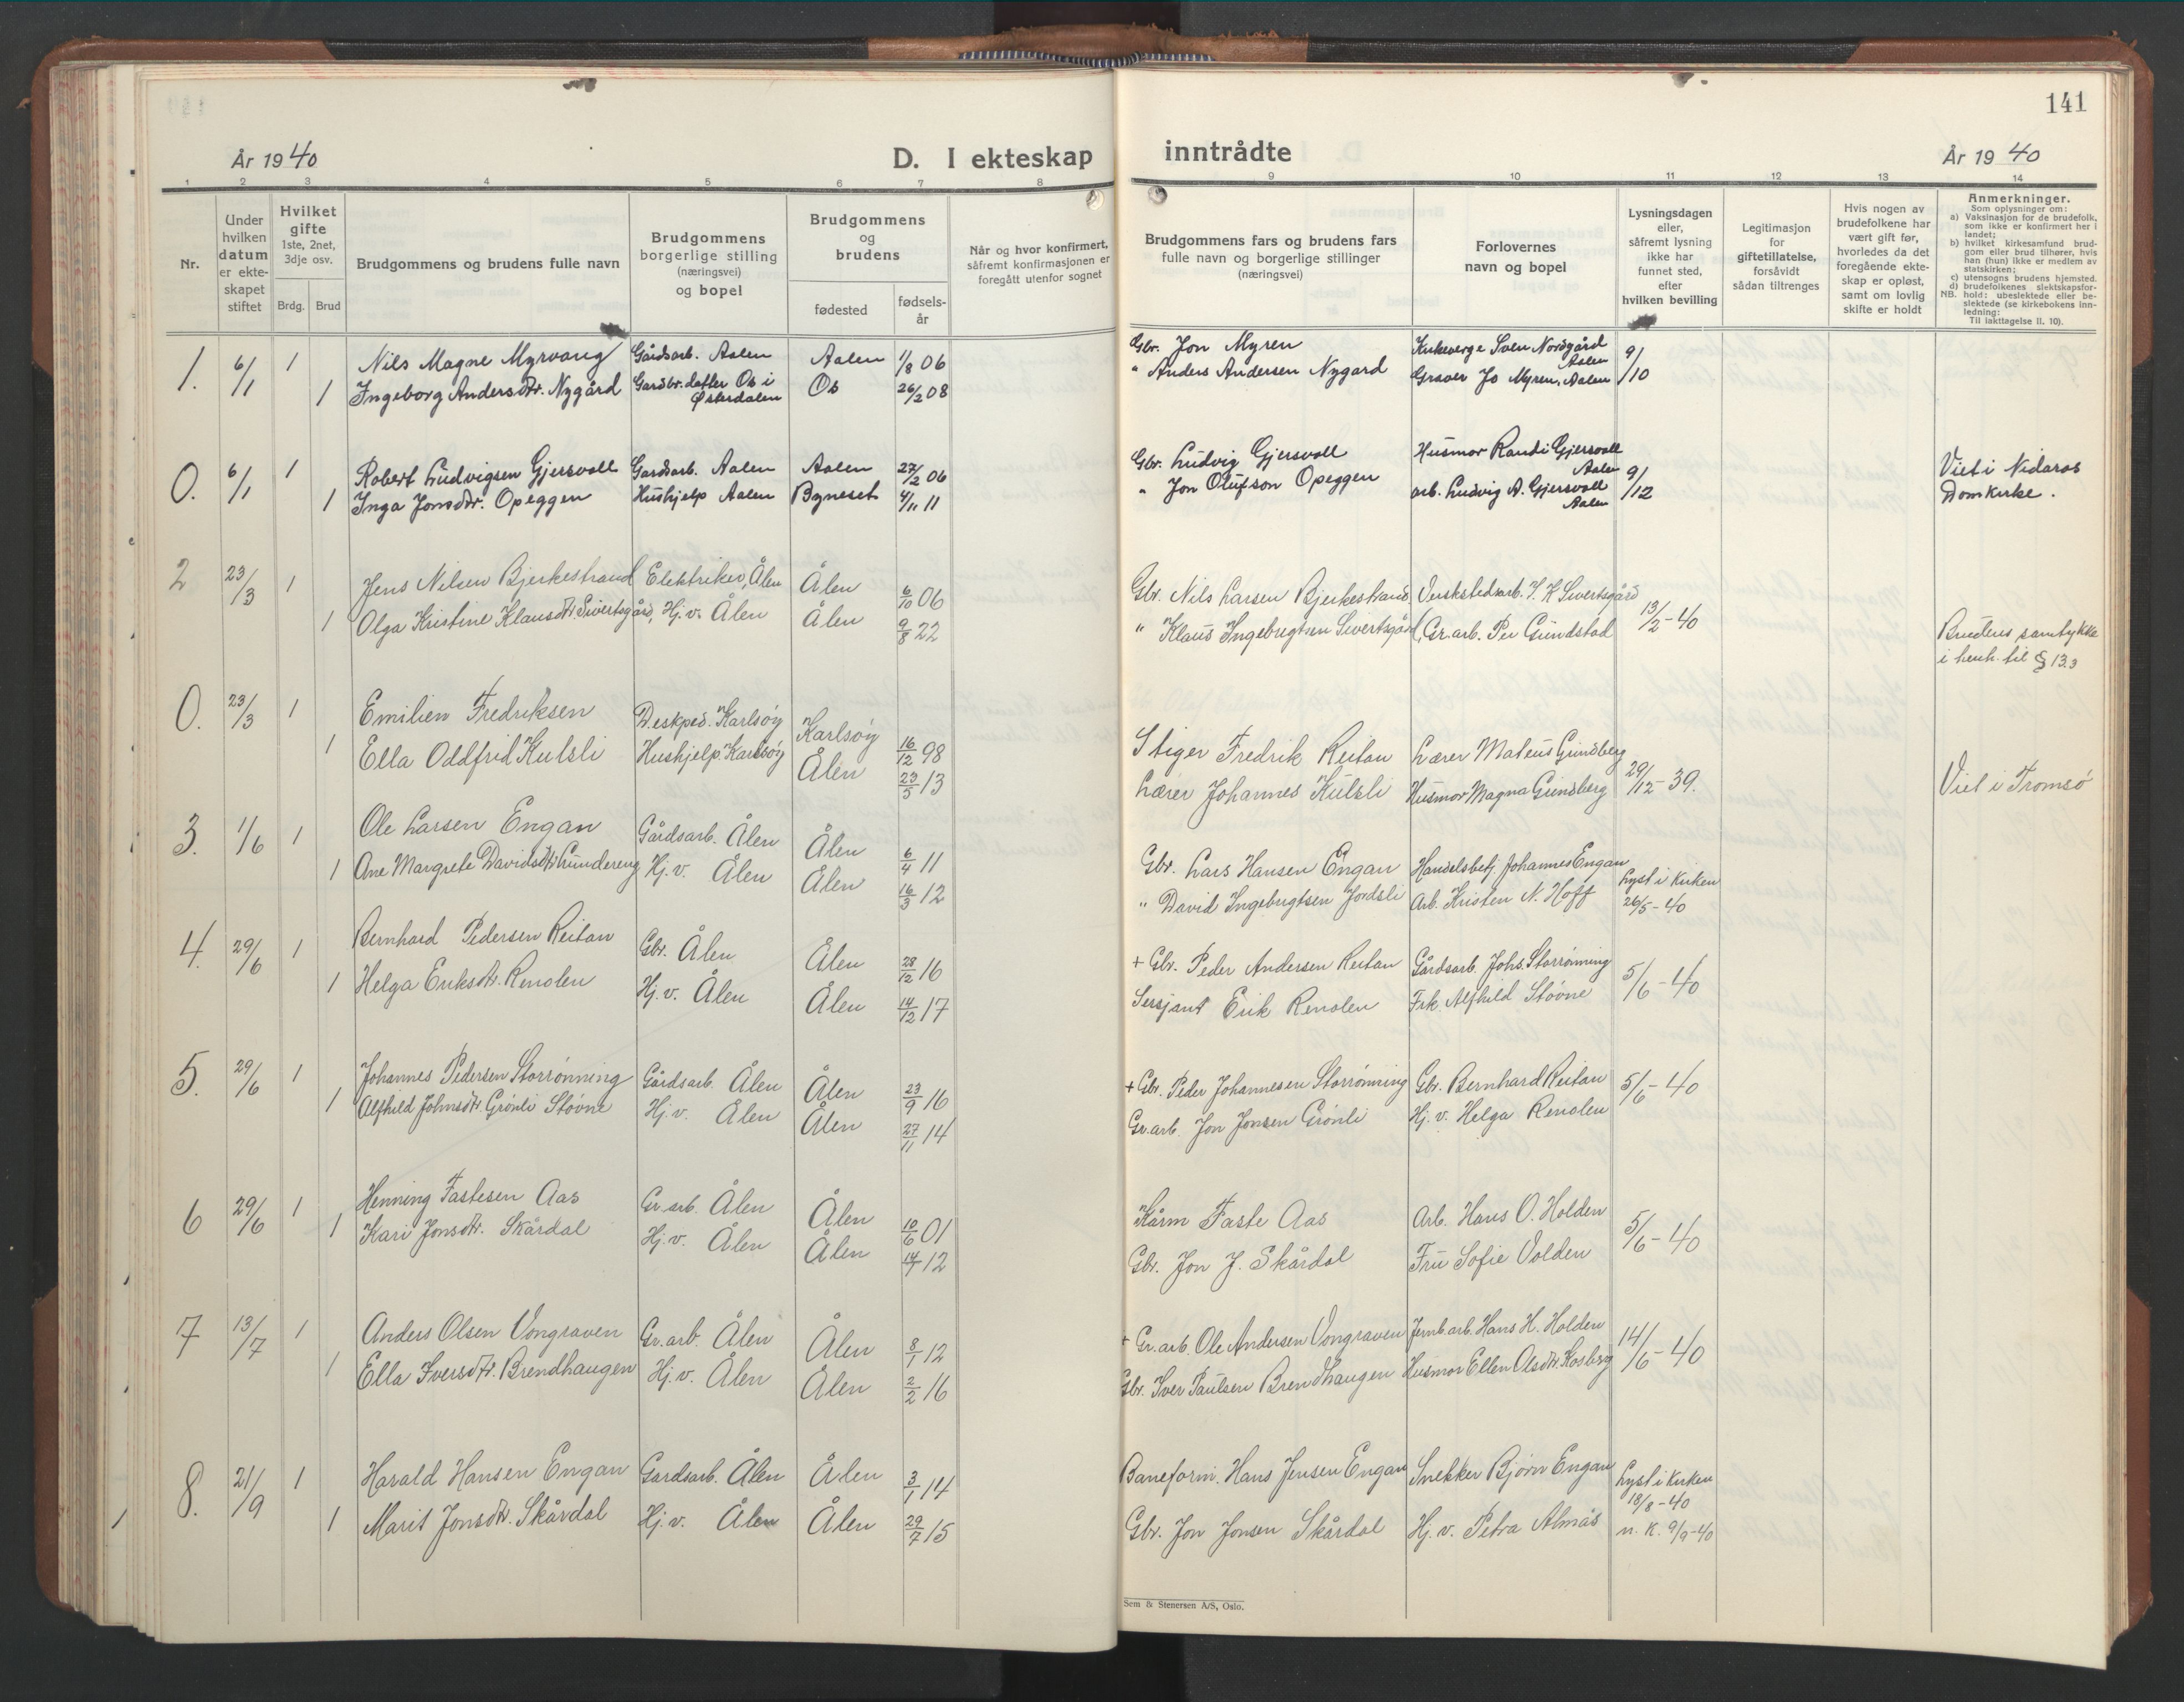 141
År 1940
D. I ekteskap
inntrådte
År 1940
1 2 3 4 5 6 7 8
9 10 11 12 13 14
Nr.
Under
hvilken
datum
er ekte-
skapet
stiftet
Hvilket
gifte
1ste, 2net,
3dje osv.
Brdg. Brud
Brudgommens og brudens fulle navn
Brudgommens
borgerlige stilling
(næringsvei)
og bopel
Brudgommens
og
brudens
fødested
fødsels-
år
Når og hvor konfirmert,
såfremt konfirmasjonen er
foregått utenfor sognet
Brudgommens fars og brudens fars
fulle navn og borgerlige stillinger
(næringsvei)
Forlovernes
navn og bopel
Lysningsdagen
eller,
såfremt lysning
ikke har
funnet sted,
efter
hvilken bevilling
Legitimasjon
for
giftetillatelse,
forsåvidt
sådan tiltrenges
Hvis nogen av
brudefolkene har
vært gift før,
hvorledes da det
foregående ekte-
skap er opløst,
samt om lovlig
skifte er holdt
Anmerkninger.
Som oplysninger om:
a) Vaksinasjon for de brudefolk,
som ikke er konfirmert her i
landet;
b) hvilket kirkesamfund brud-
gom eller brud tilhører, hvis
han (hun) ikke er medlem av
statskirken;
c) utensogns brudens hjemsted.
d) brudefolkenes slektskapsfor-
NB. hold: ubeslektede eller be-
slektede (se kirkebokens inn-
ledning:
Til iakttagelse II. 10).
1. 6/1 1 Nils Magne Myrvang Gårdsarb. Aalen Aalen 1/8 06 Gbr. Jon Myren Kirkeverge Sven Nordgård Aalen 9/10
1 Ingeborg Andersdtr. Nygård Gardbr.datter Os i Østerdalen Os 26/2 08 " Anders Andersen Nygard Graver Jo Myren, Aalen
0. 6/1 1 Robert Ludvigsen Gjersvoll Gardsarb. Aalen Aalen 27/2 06 Gbr. Ludvig Gjersvoll Husmor Randi Gjersvoll Aalen 9/12 Viet i Nidaros
1 Inga Jonsdtr. Opeggen Hushjelp Aalen Byneset 4/11 11 " Jon Olufson Opeggen arb. Ludvig A. Gjersvoll Aalen Domkirke.
2 23/3 1 Jens Nilsen Bjerkestrand Elektriker, Ålen Ålen 6/10 06 Gbr. Nils Larsen Bjerkestrand, Verkstedarb. I. K Sivertsgård 13/2-40
1 Olga Kristine Klausdtr. Sivertsgård, Hj.v. Ålen Ålen 9/8 22 " Klaus Ingebrigtsen Sivertsgård, Gr.arb. Per Gundstad Brudens samtykke
i henh. til § 13.3
0. 23/3 1 Emilien Fredriksen Karlsøy Karlsøy 16/12 98 Stiger Fredrik Reitan Lærer Mateus Grindberg 29/12-39.
1 Ella Oddfrid Kulsli Hushjelp. Karlsøy Ålen 23/5 13 Lærer Johannes Kulsli Husmor Magna Grindberg Viet i Tromsø
3. 1/6 1 Ole Larsen Engan Gårdsarb. Ålen Ålen 6/4 11 Gbr. Lars Hansen Engan Handelsbetj. Johannes Engan Lyst i kirken
1 Ane Margrete Davidsdtr. Lundereng Hj.v. Ålen Ålen 16/3 12 " David Ingebrigtsen Jordsli Arb. Kristen N. Hoff 26/5-40
4. 29/6 1 Bernhard Pedersen Reitan Gbr. Ålen Ålen 28/12 16 + Gbr. Peder Andersen Reitan Gårdsarb. Johs. Storrønning 5/6-40
1 Helga Eriksdtr. Renolen Hj.v. Ålen Ålen 14/12 17 Sersjant Erik Renolen Frk. Alfhild Støvne
5. 29/6 1 Johannes Pedersen Storrønning Gårdsarb. Ålen Ålen 23/9 16 + Gbr. Peder Johannesen Storrønning Gbr. Bernhard Reitan 5/6-40
1 Alfhild Johnsdtr. Grønli Støvne Hj.v. Ålen Ålen 27/11 14 Gr.arb. Jon Jonsen Grønli Hj.v. Helga Renolen
6 29/6 1 Henning Fastesen Aas Gr.arb. Ålen Ålen 10/6 01 Kårm Faste Aas Arb. Hans O. Holden 5/6-40
1 Kari Jonsdtr. Skårdal Hj.v. Ålen Ålen 14/7 12 Gbr. Jon J. Skårdal Fru Sofie Volden
7 13/7 1 Anders Olsen Vongraven Gr.arb. Ålen Ålen 8/1 12 + Gr.arb. Ole Andersen Vongraven Jernb.arb. Hans H. Holden 14/6-40
1 Ella Iversdtr. Brendhaugen Hj.v. Ålen Ålen 2/2 16 Gbr. Iver Paulsen Brendhaugen Husmor Ellen Olsdtr. Kosberg
8. 21/9 1 Harald Hansen Engan Gardsarb. Ålen Ålen 3/1 14 Baneform. Hans Jensen Engan Snekker Bjørn Engan Lyst i kirken
18/8-40
1 Marit Jonsdtr. Skårdal Hj.v. Ålen Ålen 29/7 15 Gbr. Jon Jonsen Skårdal Hj.v. Petra Almås u. k. 9/9-40
Sem & Stenersen A/S, Oslo.